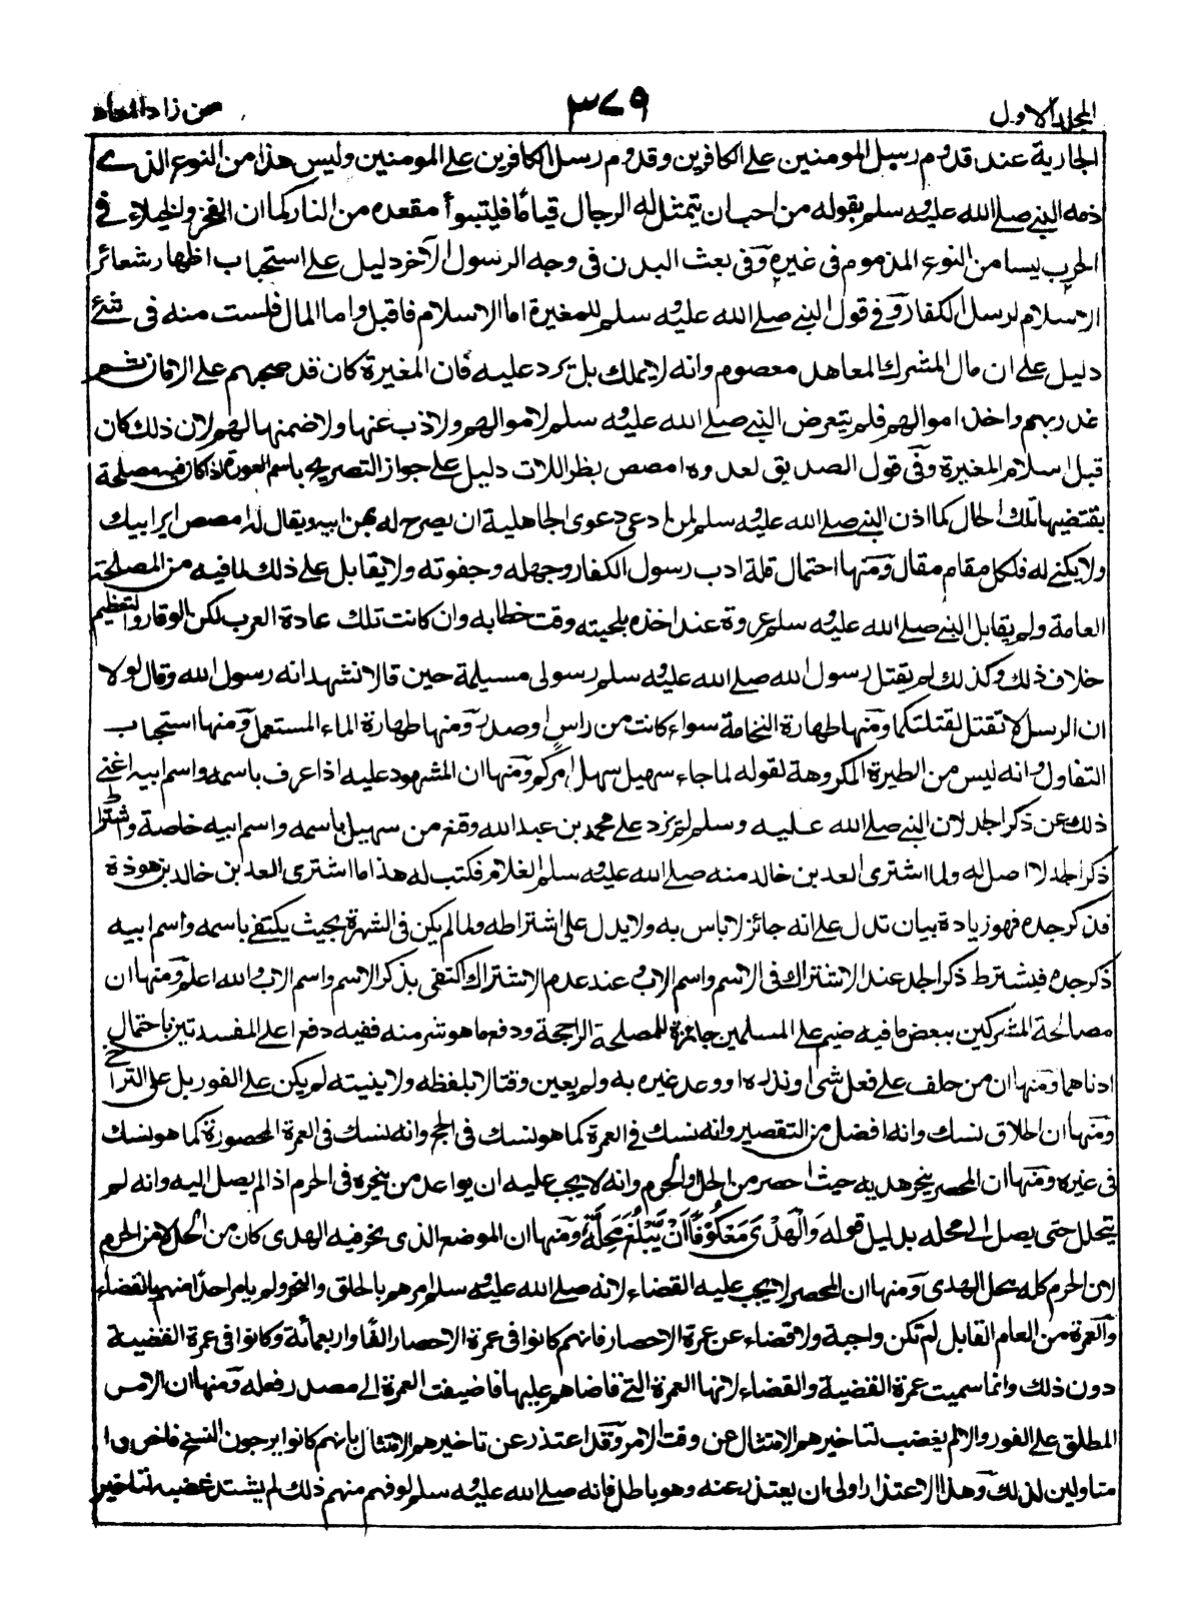 المجلد الاول
٣٧٩
من زاد المعاد
الجارية عند قدوم رسل المومنين على الكافرين وقدوم رسل الكافرين على المومنين وليس هذا من النوع الذى
ذمه النبى صلى الله عليه وسلم بقوله من احب ان يتمثل له الرجال قياما فليتبوأ مقعده من النار كما ان الفخر والخيلاء فى
الحرب ليسا من النوع المذموم فى غيره وفى بعث البدن فى وجه الرسول الآخر دليل على استحباب اظهار شعائر
الاسلام لرسل الكفار وفى قول النبى صلى الله عليه وسلم للمغيرة اما الاسلام فاقبل واما المال فلست منه فى شئ
دليل على ان مال المشرك المعاهد معصوم وانه لا يملك بل يرد عليه فان المغيرة كان قد صحبهم على الامان ثم
غدر بهم واخذ اموالهم فلم يتعرض النبى صلى الله عليه وسلم لاموالهم ولا ذب عنها ولا ضمنها لهم لان ذلك كان
قبل اسلام المغيرة وفى قول الصديق لعروة امصص بظر اللات دليل على جواز التصريح باسم العورة اذا كان فيه مصلحة
يقتضيها تلك الحال كما اذن النبى صلى الله عليه وسلم لمن ادعى دعوى الجاهلية ان يصرح له بهن ابيه ويقال له امصص اير ابيك
ولا يكنى له فلكل مقام مقال ومنها احتمال قلة ادب رسول الكفار وجهله وجفوته ولا يقابل على ذلك لما فيه من المصلحة
العامة ولم يقابل النبى صلى الله عليه وسلم عروة عند اخذه بلحيته وقت خطابه وان كانت تلك عادة العرب لكن الوقار والتعظيم
خلاف ذلك وكذلك لم يقتل رسول الله صلى الله عليه وسلم رسولى مسيلمة حين قالا نشهد انه رسول الله وقال لولا
ان الرسل لا تقتل لقتلتكما ومنها طهارة النخامة سواء كانت من راس او صدر ومنها طهارة الماء المستعمل ومنها استحباب
التفاول وانه ليس من الطيرة المكروهة لقوله لما جاء سهيل سهل امركم ومنها ان المشهود عليه اذا عرف باسمه واسم ابيه اغنى
ذلك عن ذكر الجد لان النبى صلى الله عليه وسلم لم يزد على محمد بن عبد الله وقنع من سهيل باسمه واسم ابيه خاصة واشتراط
ذكر الجد لا اصل له ولما اشترى العد بن خالد منه صلى الله عليه وسلم الغلام فكتب له هذا ما اشترى العد بن خالد بن هوذة
فذكر جده فهو زيادة بيان تدل على انه جائز لا باس به ولا يدل على اشتراطه ولما لم يكن فى الشهرة بحيث يكتفى باسمه واسم ابيه
ذكر جده فيشترط ذكر الجد عند الاشتراك فى الاسم واسم الاب وعند عدم الاشتراك اكتفى بذكر الاسم واسم الاب والله اعلم ومنها ان
مصالحة المشركين ببعض ما فيه ضيم على المسلمين جائزة للمصلحة الراجحة ودفع ما هو شر منه ففيه دفع اعلى المفسدتين باحتمال
ادناهما ومنها ان من حلف على فعل شئ او نذره او وعد غيره به ولم يعين وقتا لا بلفظه ولا بنيته لم يكن على الفور بل على التراخى
ومنها ان الحلاق نسك وانه افضل من التقصير وانه نسك فى العمرة كما هو نسك فى الحج وانه نسك فى العمرة المحصورة كما هو نسك
فى غيره ومنها ان المحصر ينحر هديه حيث احصر من الحل او الحرم وانه لا يجب عليه ان يواعد من ينحره فى الحرم اذا لم يصل اليه وانه لم
يتحلل حتى يصل الى محله بدليل قوله وَالْهَدْىَ مَعْكُوْفًا اَنْ يَّبْلُغَ مَحِلَّهٗ ومنها ان الموضع الذى نحر فيه الهدى كان من الحل لا من الحرم
لان الحرم كله محل الهدى ومنها ان المحصر لا يجب عليه القضاء لانه صلى الله عليه وسلم امرهم بالحلق والنحر ولم يامر احدا منهم بالقضاء
والعمرة من العام القابل لم تكن واجبة ولا قضاء عن عمرة الاحصار فانهم كانوا فى عمرة الاحصار الفا واربعمائة وكانوا فى عمرة القضية
دون ذلك وانما سميت عمرة القضية والقضاء لانها العمرة التى قاضاهم عليها فاضيفت العمرة الى مصدر فعله ومنها ان الامر
المطلق على الفور والا لم يغضب لتاخيرهم الامتثال عن وقت الامر وقد اعتذر عن تاخيرهم الامتثال بانهم كانوا يرجون النسخ فاخروا
متاولين لذلك وهذا الاعتذار اولى ان يعتذر عنه وهو باطل فانه صلى الله عليه وسلم لو فهم منهم ذلك لم يشتد غضبه لتاخير